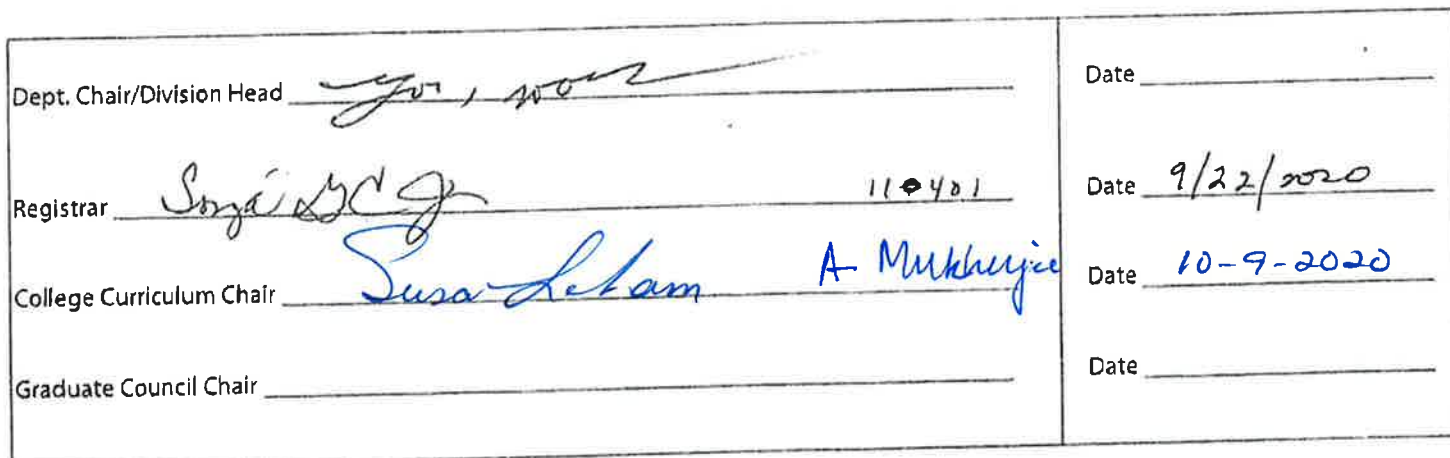 Dept. Chair/Division Head Date
Registrar 110401 Date 9/22/2020
College Curriculum Chair A Mukherjee Date 10-9-2020
Graduate Council Chair Date